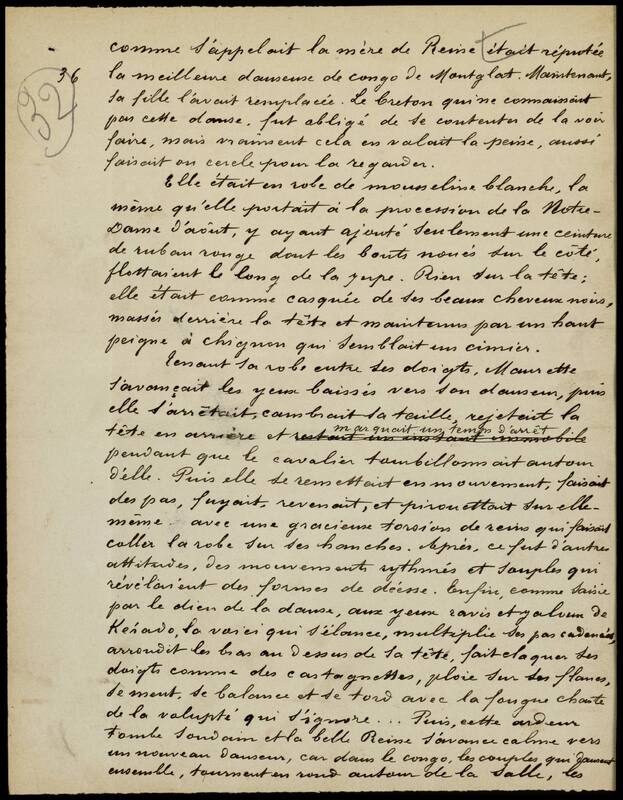 36
32
comme s'appelait la mère de Reine était réputée
la meilleure danseuse de congo de Montglat. Maintenant,
sa fille l'avait remplacée. Le breton qui ne connaissait
pas cette danse, fut obligé de se contenter de la voir
faire, mais vraiment cela en valait la peine, aussi
faisait on cercle pour la regarder.
Elle était en robe de mousseline blanche, la
même qu'elle portait à la procession de la Notre-
Dame d'août, y ayant ajouté seulement une ceinture
de ruban rouge dont les bouts noués sur le côté,
flottaient le long de la jupe. Rien sur la tête;
elle était comme casquée de ses beaux cheveux noirs,
massés derrière la tête et maintenus par un haut
peigne à chignon qui semblait un cimier.
Tenant sa robe entre ses doigts, Maurette
s'avançait les yeux baissés vers son danseur, puis
elle s'arrêtait, cambrait sa taille, rejetait la
marquait un temps d'arrêt
tête en arrière et restait un instant immobile
pendant que le cavalier tourbillonnait autour
d'elle. Puis elle se remettait en mouvement, faisait
des pas, fuyait, revenait, et pirouettait sur elle-
même avec une gracieuse torsion de reins qui faisait
coller la robe sur ses hanches. Après, ce fut d'autres
attitudes, des mouvements rythmés et souples qui
révélaient des formes de déesse. Enfin, comme saisie
par le dieu de la danse, aux yeux ravis et jaloux de
Kérado, la voici qui s'élance, multiplie ses pas cadencés,
arrondit les bras au dessus de sa tête, fait claquer ses
doigts comme des castagnettes, ploie sur ses flancs,
se meut, se balance et se tord avec la fougue chaste
de la volupté qui s'ignore... Puis, cette ardeur
tombe soudain et la belle Reine s'avance calme vers
un nouveau danseur, car dans le congo, les couples qui dansent
ensemble, tournent en rond autour de la salle, les